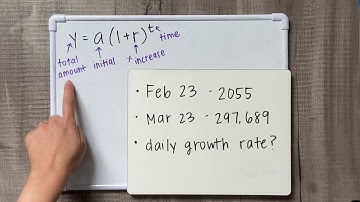 y = a (1+r)^t
time
total amount
initial
% increase
• Feb 23 - 2055
• Mar 23 - 297,689
• daily growth rate?